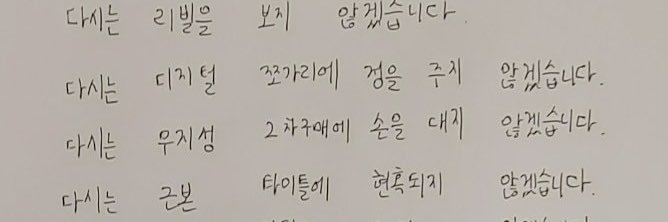 다시는 리빌을 보지 않겠습니다.
다시는 디지털 쪼가리에 정을 주지 않겠습니다.
다시는 우지성 2차구매에 손을 대지 않겠습니다.
다시는 근본 타이틀에 현혹되지 않겠습니다.